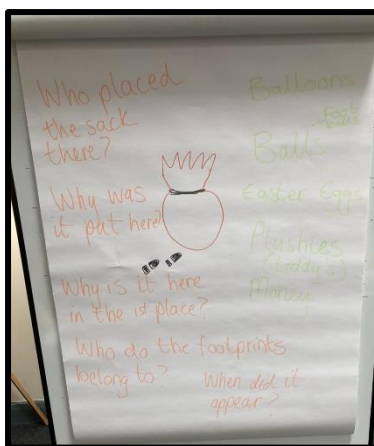 Who placed
the sack
there?
Why was
it put here?
Why is it here
in the 1st place?
Who do the footprints
belong to?
When did it
appear?
Balloons
Balls
Easter Eggs
Plushies
(teddy's)
Money